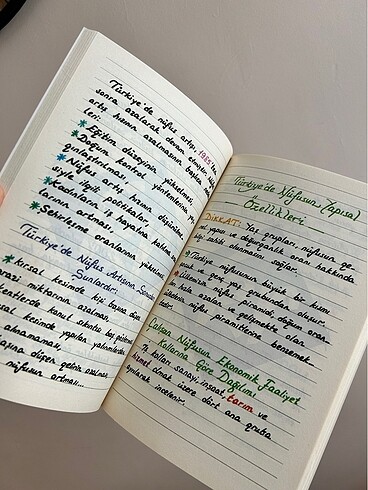 Türkiye'de nüfus artışı, 1985'ten
sonra azalarak devam etmiştir.
artış hızının azalmasının başlıca
leri:
* Eğitim düzeyinin yükselmesi
* Doğum kontrol yöntemlerinin
gınlaştırılması
* Nüfus artış hızını düşürücü
siyle ilgili politikalar
* Kadınların iş hayatına
larının artması.
* Şehirleşme oranlarının yükselmesi
Türkiye'de Nüfus Artışına
Sunlardır:
* Kırsal kesimde kişi başına düşen
arazi miktarının azalması,
kentlerde konut sıkıntısı baş göstermesi
kesimde yapılan yatırımlardan
alınamaması,
başına düşen gelirin azalması
nüfusun artması...
Türkiye'de Nüfusun Yapısal
Özellikleri
DİKKAT: Yaş grupları, nüfusun
yapısı ve doğurganlık oranı hakkında
bilgi sahibi olunmasını sağlar.
Türkiye nüfusunun büyük bir kısmı
ve genç yaş grubunda oluşur.
* Ülkemizin nüfus piramidi, doğum oranı
hızla azalan ve gelişmekte olan
ülkelerin nüfus piramitlerine benzemek-
tedir.
Çalışan Nüfusun Ekonomik Faaliyet
Kollarına Göre Dağılımı
İş kolları sanayi, inşaat, tarım ve
hizmet olmak üzere dört ana grupta
ayrılarak incelenir.